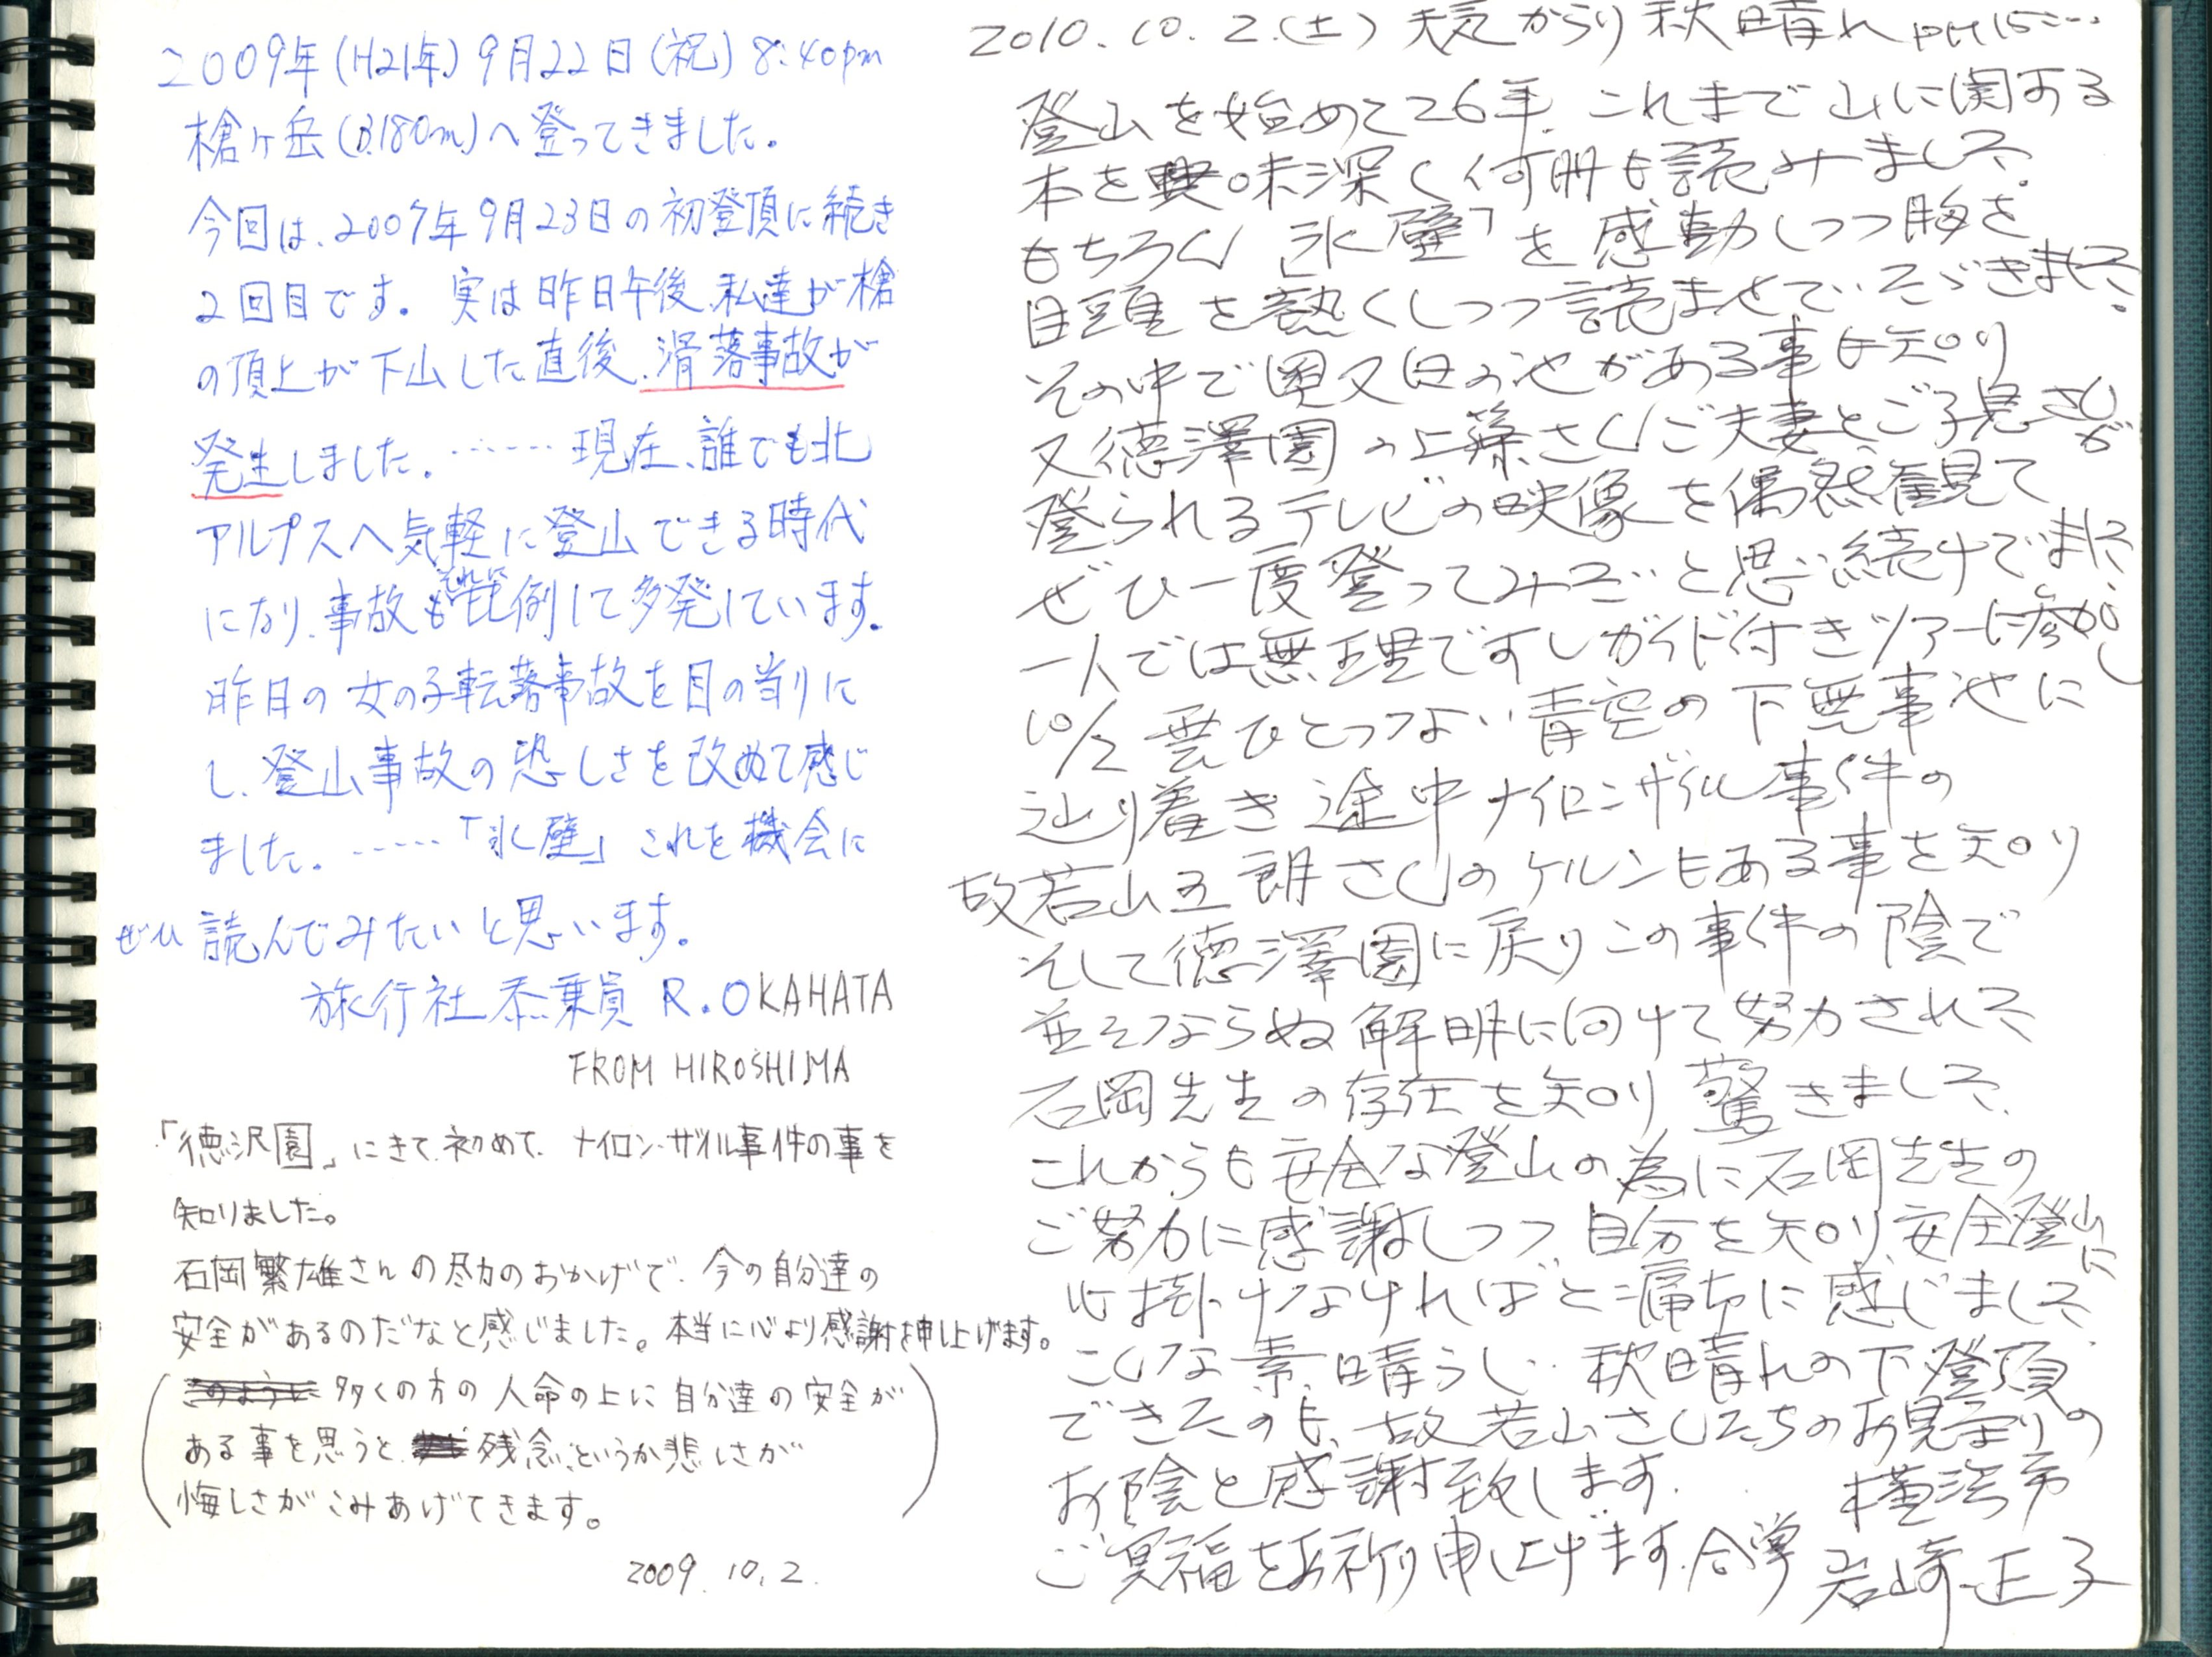 2009年(H21年)9月22日(祝)8:40pm
槍ヶ岳(3,180m)へ登ってきました。
今回は、2007年9月23日の初登頂に続き
2回目です。実は昨日午後、私達が槍
の頂上が下山した直後、滑落事故が
発生しました。……現在、誰でも北
アルプスへ気軽に登山できる時代
になり、事故もそれに比例して多発しています。
昨日の女の子転落事故を目の当りに
し、登山事故の恐しさを改めて感じ
ました。……「氷壁」これを機会に
ぜひ読んでみたいと思います。
旅行社添乗員 R.OKAHATA
FROM HIROSHIMA
「徳沢園」にきて、初めて、ナイロン・ザイル事件の事を
知りました。
石岡繁雄さんの尽力のおかげで、今の自分達の
安全があるのだなと感じました。本当に心より感謝を申し上げます。
(多くの方の人命の上に自分達の安全が
ある事を思うと残念、というか悲しさが
悔しさがこみあげてきます。)
2009.10.2.
2010.10.2.(土)天気からり秋晴れ PM15:
登山を始めて26年、これまで山に関する
本を興味深く何冊も読みました。
もちろん「氷壁」を感動しつつ胸を
目頭を熱くしつつ読ませていただきました。
その中で奥又白の池がある事も知り
又徳澤園の上條さんご夫妻と、ご子息さんが
登られるテレビの映像を偶然観て
ぜひ一度登ってみたいと思い続けてました。
一人では無理ですしガイド付きツアーに参加し
10/2 雲ひとつない青空の下無事池に
辿り着き途中ナイロンザイル事件の
故若山五朗さんのケルンもある事を知り
そして徳澤園に戻りこの事件の陰で
並々ならぬ解明に向けて努力された
石岡先生の存在を知り驚きました。
これからも安全な登山の為に石岡先生の
ご努力に感謝しつつ、自分を知り、安全登山に
心掛けなければと痛切に感じました。
こんな素晴らしい秋晴れの下登頂
できたのも、故若山さんたちのお見守りの
お陰と感謝致します。 横浜市
ご冥福をお祈り申し上げます。合掌 岩崎正子